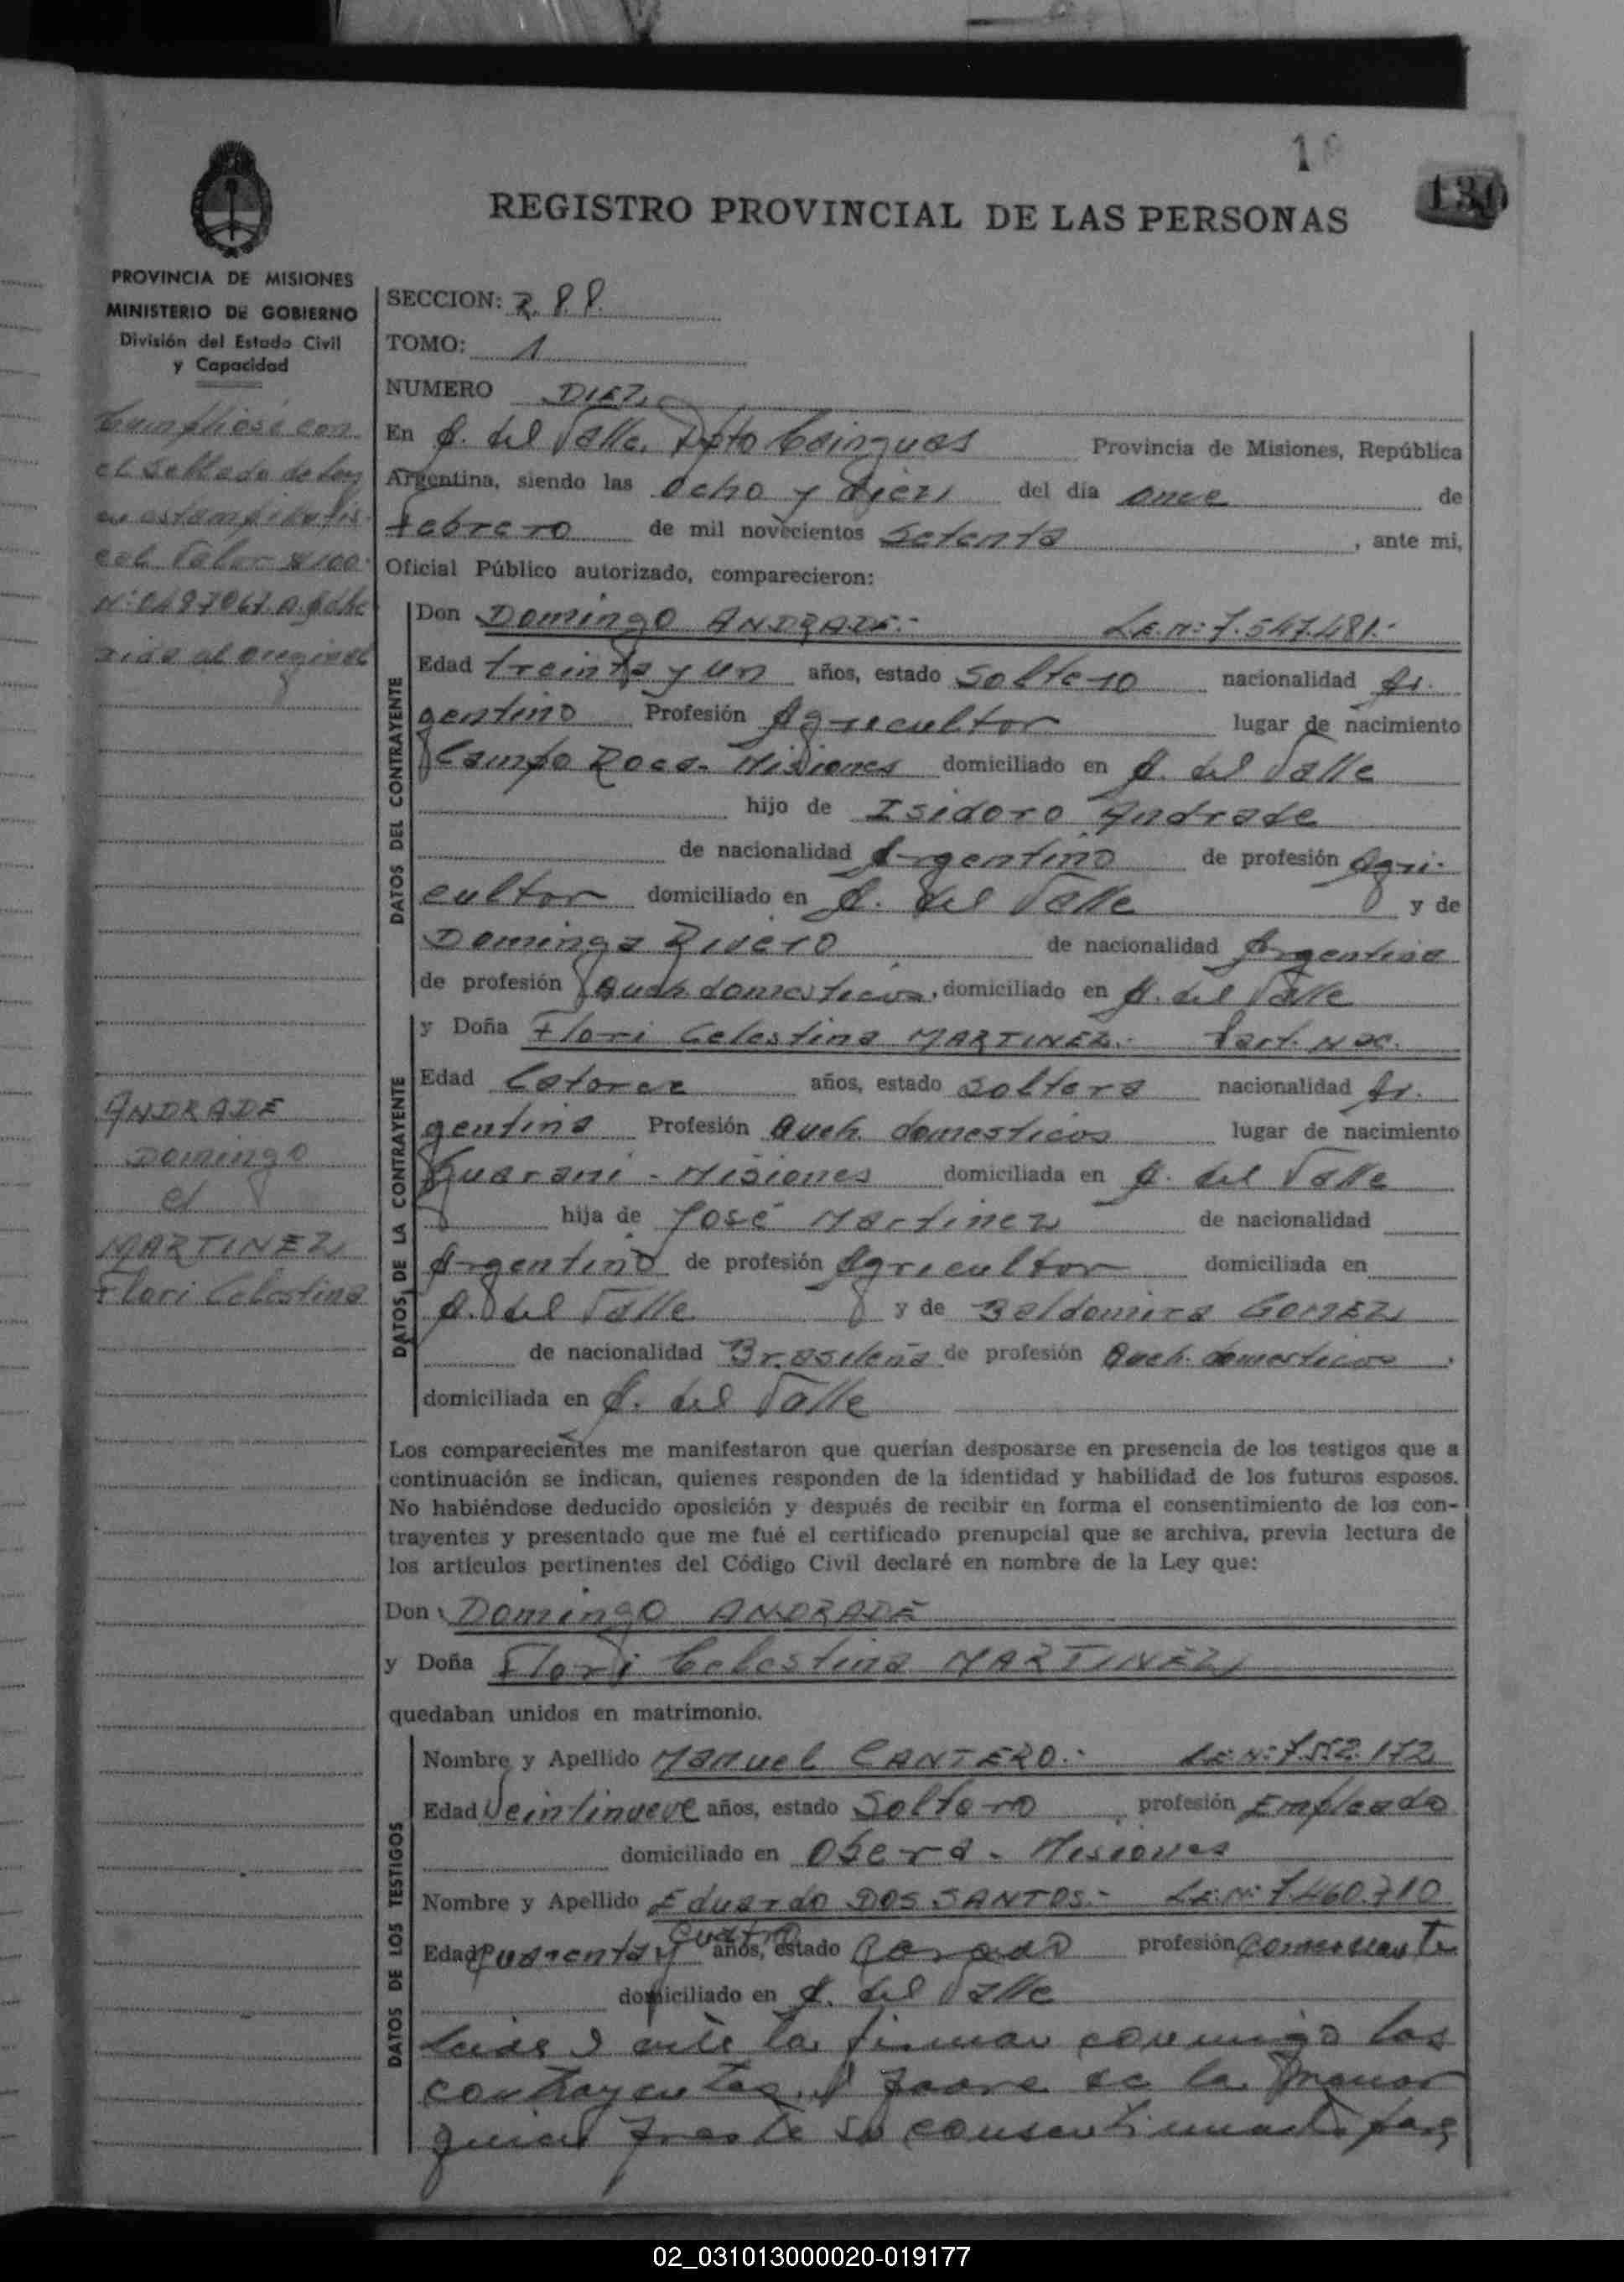 1
130
REGISTRO PROVINCIAL DE LAS PERSONAS
PROVINCIA DE MISIONES
MINISTERIO DE GOBIERNO
División del Estado Civil
y Capacidad
Cumpliose con
el sellado de ley
en estampillas
valor $100
rido al original
ANDRADE
Domingo
el
MARTINEZ
Flori Celestina
SECCION: R.P.P.
TOMO: 1
NUMERO DIEZ
En A. del Valle, Dpto Cainguas Provincia de Misiones, República
Argentina, siendo las ocho y diez del día once de
febrero de mil novecientos setenta, ante mi,
Oficial Público autorizado, comparecieron:
DATOS DEL CONTRAYENTE
Don Domingo ANDRADE.- L.E.Nº: 7.547.481.-
Edad treinta y un años, estado soltero nacionalidad Ar-
gentino Profesión Agricultor lugar de nacimiento
Campo Roca- Misiones domiciliado en A. del Valle
hijo de Isidoro Andrade
de nacionalidad Argentino de profesión Agri-
cultor domiciliado en A. del Valle y de
Dominga Rivero de nacionalidad Argentina
de profesión Queh. domesticos, domiciliado en A. del Valle
DATOS DE LA CONTRAYENTE
y Doña Flori Celestina MARTINEZ.- Part. Nac.
Edad Catorce años, estado soltera nacionalidad Ar-
gentina Profesión Queh. domesticos lugar de nacimiento
Guarani - Misiones domiciliada en A. del Valle
hija de José Martinez de nacionalidad
Argentino de profesión Agricultor domiciliada en
A. del Valle y de Baldomira GOMEZ
de nacionalidad Brasileña de profesión Queh. domesticos,
domiciliada en A. del Valle
Los comparecientes me manifestaron que querían desposarse en presencia de los testigos que a
continuación se indican, quienes responden de la identidad y habilidad de los futuros esposos.
No habiéndose deducido oposición y después de recibir en forma el consentimiento de los con-
trayentes y presentado que me fué el certificado prenupcial que se archiva, previa lectura de
los artículos pertinentes del Código Civil declaré en nombre de la Ley que:
Don Domingo ANDRADE
y Doña Flori Celestina MARTINEZ
quedaban unidos en matrimonio.
DATOS DE LOS TESTIGOS
Nombre y Apellido Manuel CANTERO.- L.E.Nº: 7.552.172
Edad Veintinueve años, estado Soltero profesión Empleado
domiciliado en Obera - Misiones
Nombre y Apellido Eduardo DOS SANTOS.- L.E.Nº: 7.460.710
Edad Cuarenta y cuatro años, estado Casado profesión comerciante
domiciliado en A. del Valle
Leida el acta la firman conmigo los
contrayentes, el padre de la menor
quien presta su consentimiento para
02_031013000020-019177